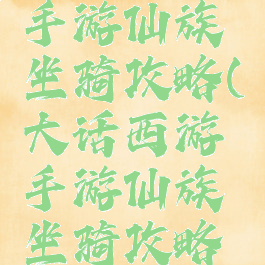 手游仙族
坐骑攻略(
大话西游
手游仙族
坐骑攻略